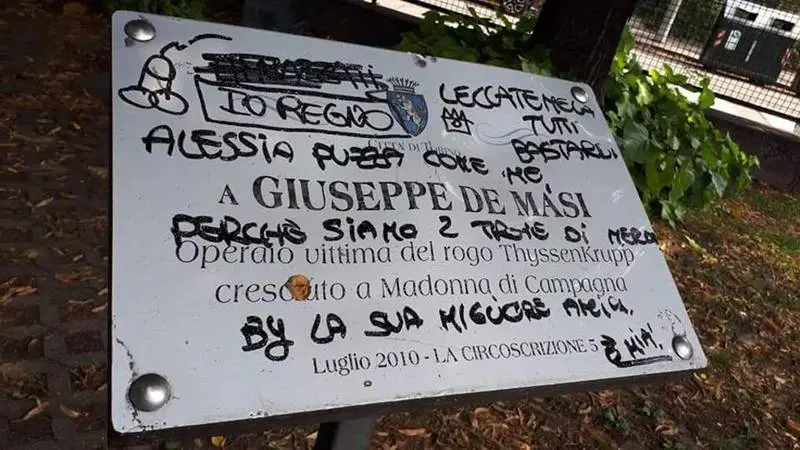 IO REGNO
LECCATEMELA
TUTTI
BASTARDI
CITTÀ DI TORINO
ALESSIA PUZZA COME ME,
A GIUSEPPE DE MASI
PERCHÈ SIAMO 2 TROIE DI MERDA
Operaio vittima del rogo ThyssenKrupp
cresciuto a Madonna di Campagna
BY LA SUA MIGLIORE AMICA
Luglio 2010 - LA CIRCOSCRIZIONE 5
È MIA!